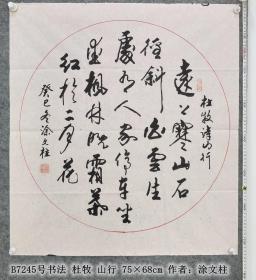 杜牧詩山行
遠上寒山石
徑斜白雲生
處有人家停車坐
愛楓林晚霜葉
紅於二月花
癸巳冬涂文柱
B7245号书法 杜牧 山行 75×68cm 作者：涂文柱